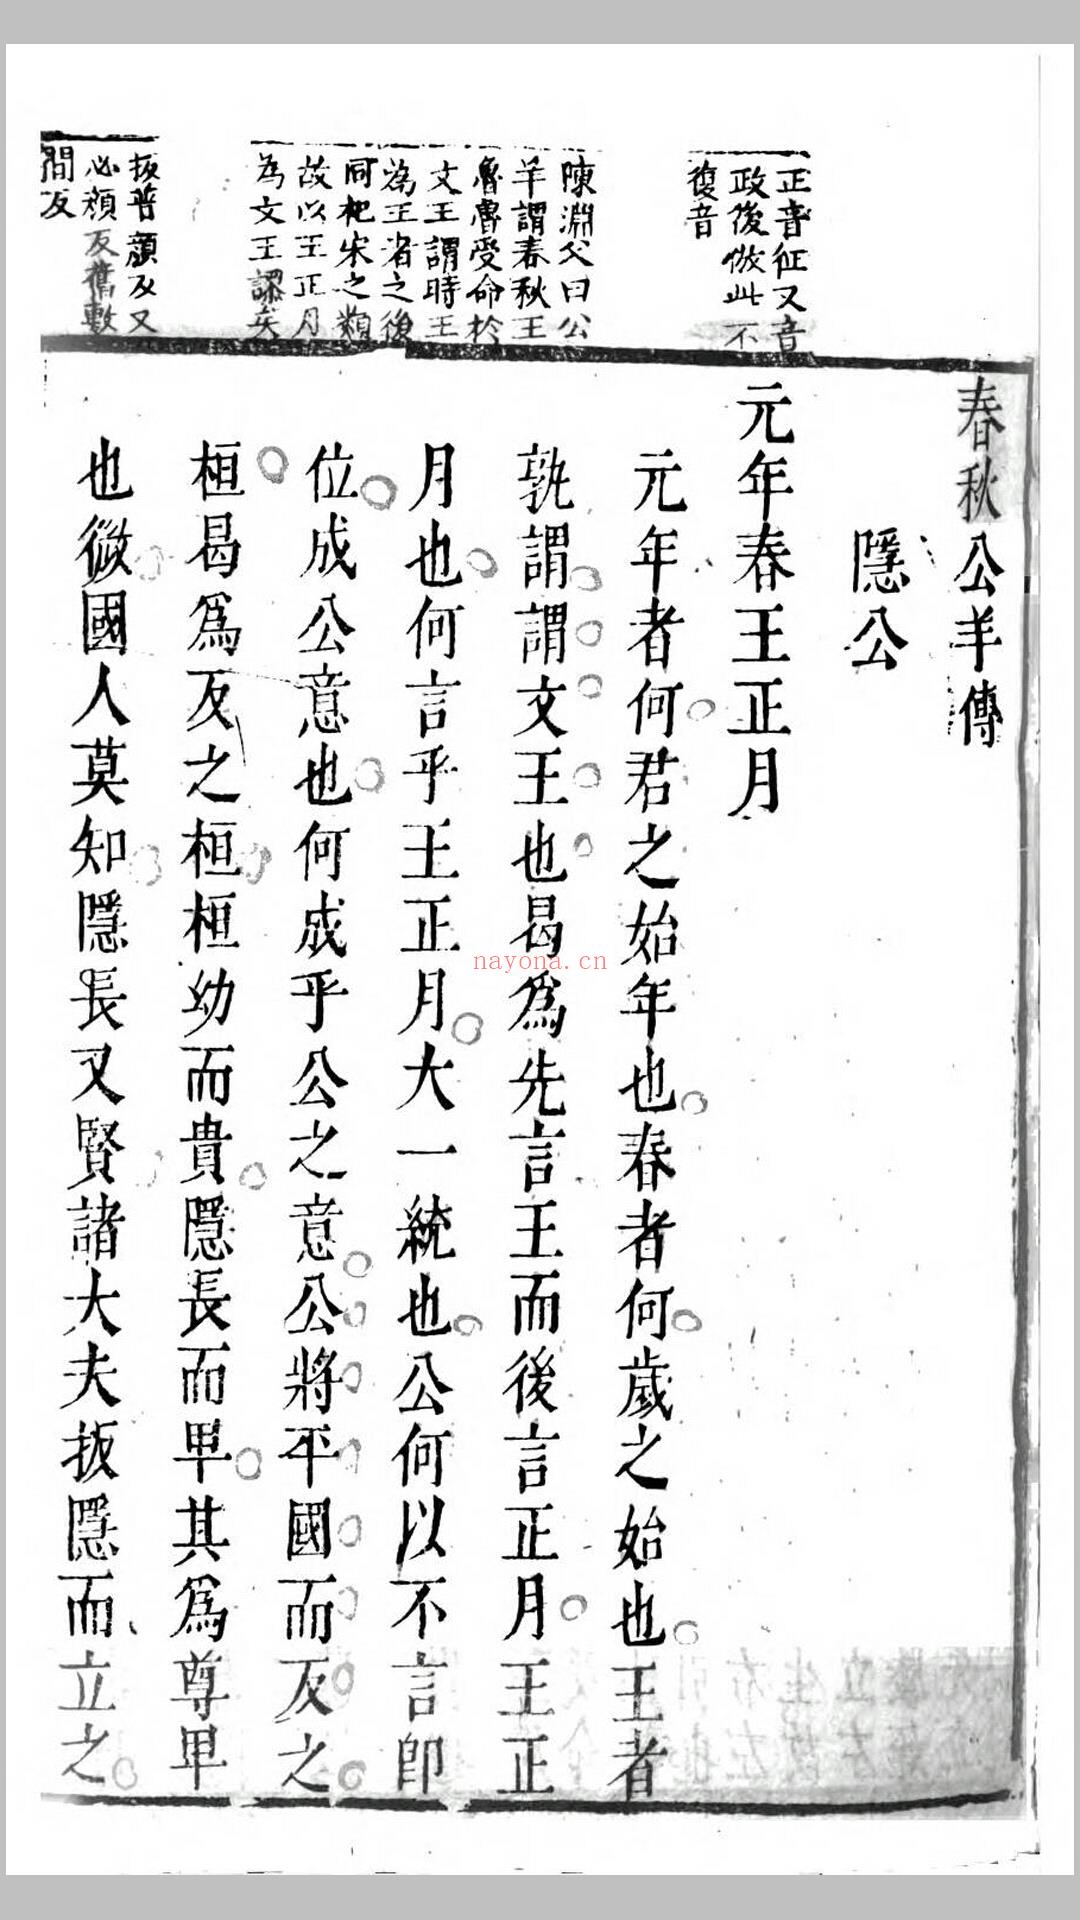 春秋公羊傳
隱公
元年春王正月
元年者何君之始年也春者何歲之始也王者
孰謂謂文王也曷爲先言王而後言正月王正
月也何言乎王正月大一統也公何以不言即
位成公意也何成乎公之意公將平國而反之
桓曷爲反之桓桓幼而貴隱長而卑其爲尊卑
也微國人莫知隱長又賢諸大夫扳隱而立之
正音征又音
政後倣此不
復音
陳淵父曰公
羊謂春秋王
魯魯受命於
文王謂時王
為王者之後
同杞宋之類
故以王正月
為文王謬矣
扳普顔反又
必顔反舊敷
間反
nayona.cn